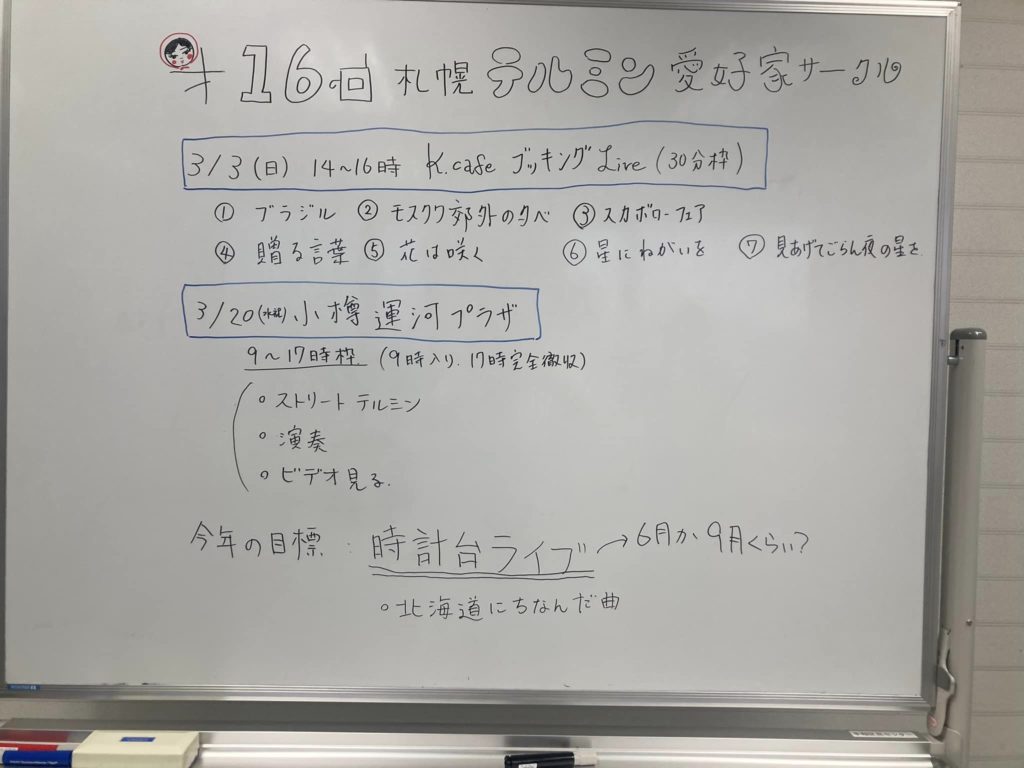 才16回 札幌 テルミン 愛好家サークル
3/3(日) 14~16時 K.cafe ブッキングLive(30分枠)
① ブラジル ② モスクワ郊外の夕べ ③スカボローフェア
④ 贈る言葉 ⑤ 花は咲く ⑥星にねがいを ⑦ 見あげてごらん夜の星を
3/20(水祝)小樽運河プラザ
9~17時枠 (9時入り.17時完全撤収)
○ストリートテルミン
○演奏
○ビデオ見る.
今年の目標 : 時計台ライブ→6月か9月くらい?
○北海道にちなんだ曲